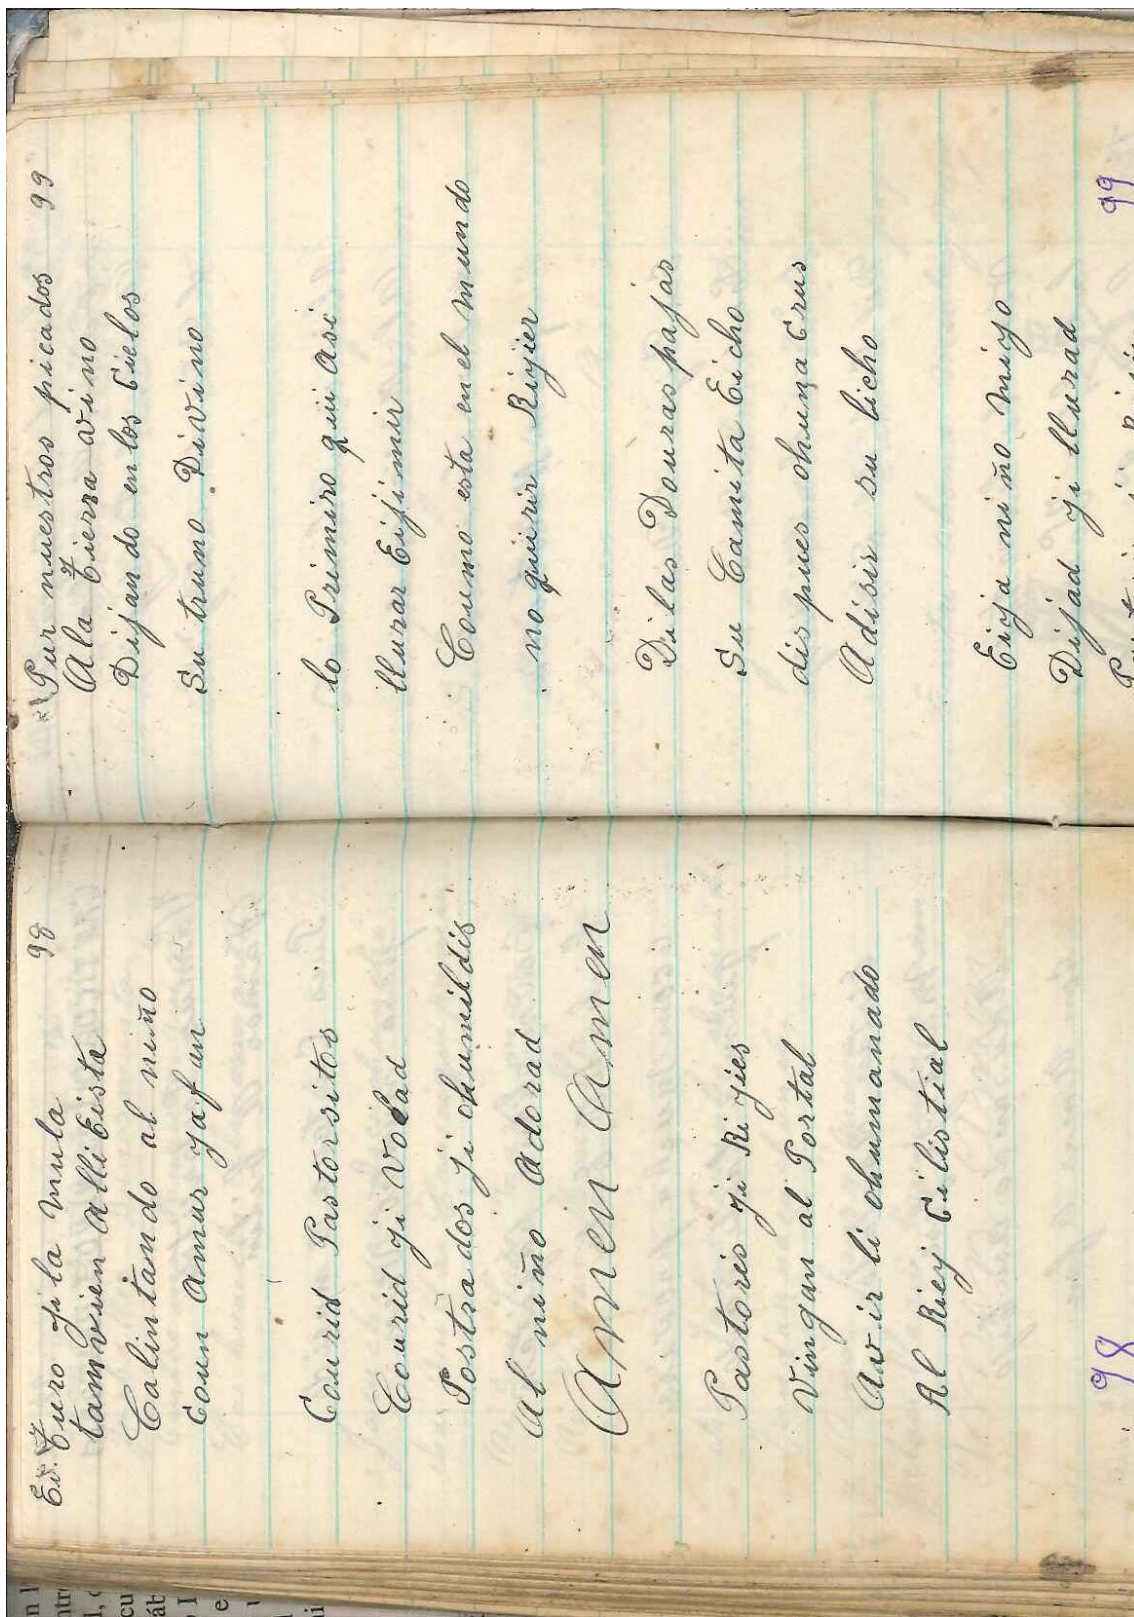 98
Ei. Turo ji la mula
tamvien alli Eista
Calintando al niño
Coun Amur ja fan
Courid Pastorsitos
Courid ji Volad
Postrados ji ohumildis
Al niño Adorad
Amen Amen
Pastoris ji Rijies
Vingan al Portal
Avir li ohumanado
Al Riej Cilistial
98
Pur nuestros picados 99
Ala Tierra vino
Dijando en los Cielos
Su truno Divino
lo Primiro qui asi
llurar Eijimir
Coumo esta en el mundo
no quirir Riejier
Dilas Douras pajas
Su Camita Eicho
dis pues ohuna Crus
Adisir su licho
Eija niño mijo
Dijad ji llurad
99